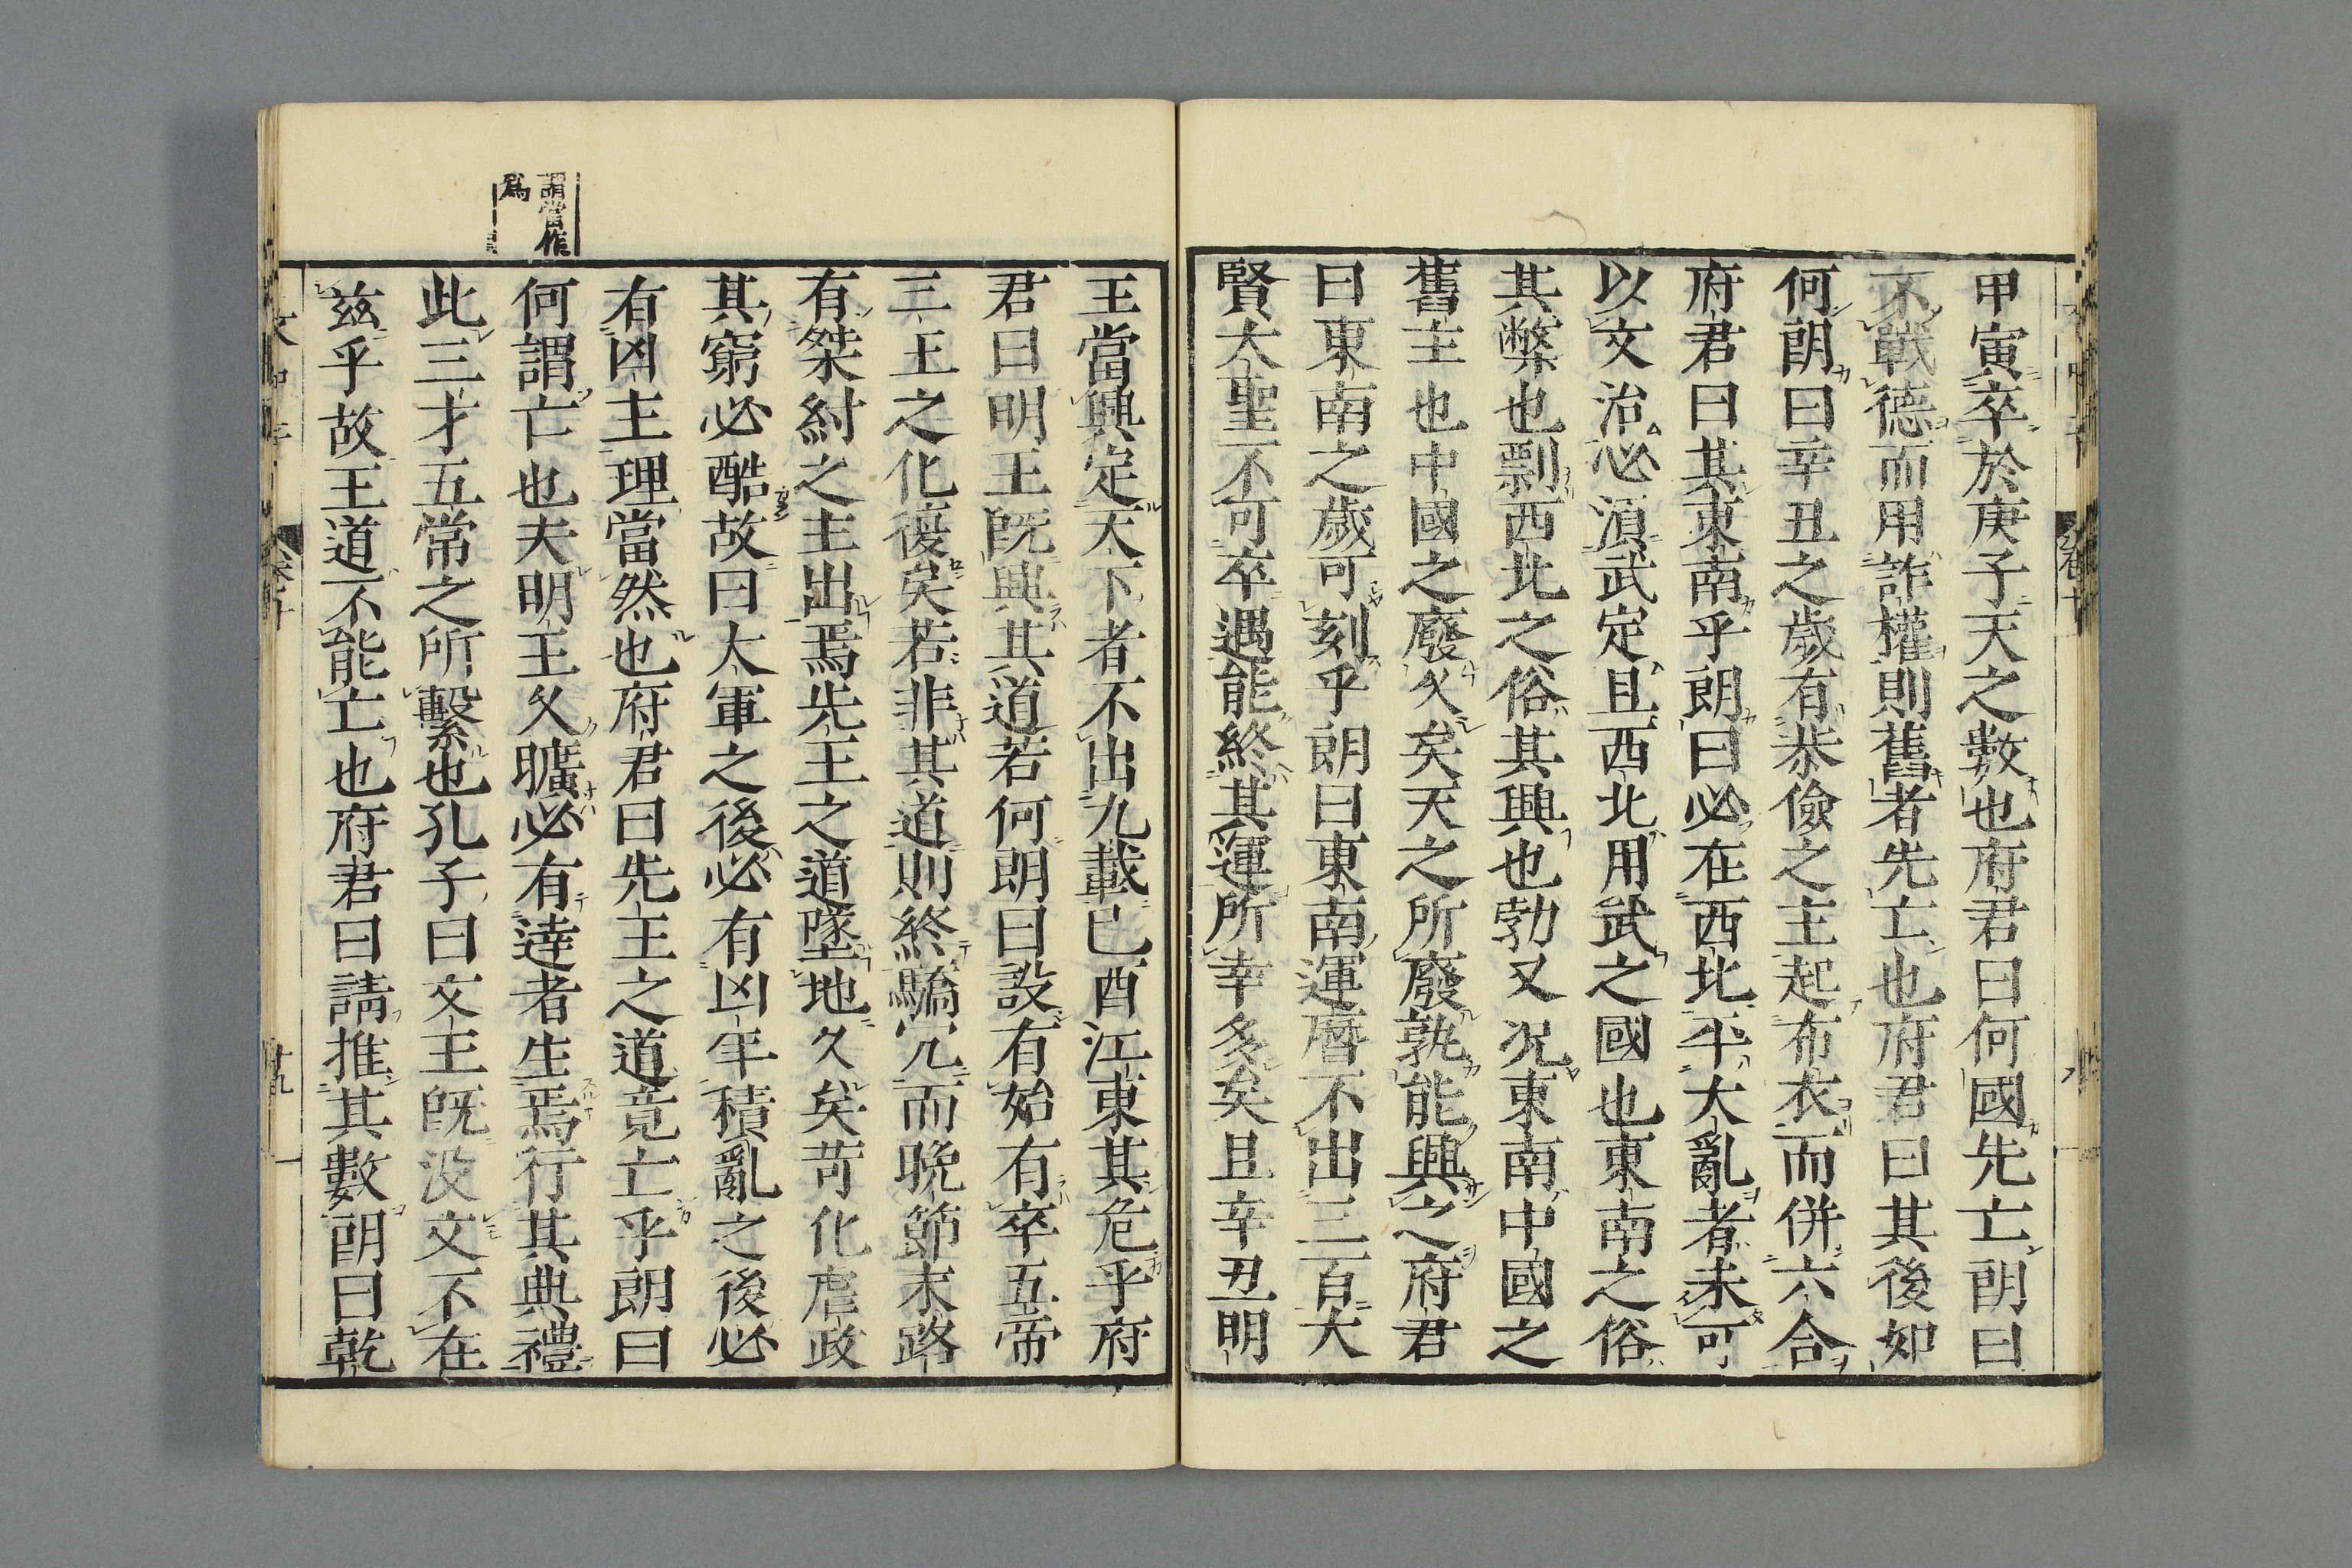 甲寅卒於庚子天之數也府君曰何國先亡朗曰
不戰德而用詐權則舊者先亡也府君曰其後如
何朗曰辛丑之歲有恭儉之主起布衣而併六合
府君曰其東南乎朗曰必在西北平大亂者未可
以文治必須武定且西北用武之國也東南之俗
其弊也剽西北之俗其興也勃又況東南中國之
舊主也中國之廢久矣天之所廢孰能興之府君
曰東南之歲可刻乎朗曰東南運曆不出三百大
賢大聖不可卒遇能終其運所幸多矣且辛丑明
王當興定天下者不出九載已酉江東其危乎府
君曰明王旣興其道若何朗曰設有始有卒五帝
三王之化復矣若非其道則終驕亢而晚節末路
有桀紂之主出焉先王之道墜地久矣苛化虐政
其窮必酷故曰大軍之後必有凶年積亂之後必
有凶主理當然也府君曰先主之道竟亡乎朗曰
謂當作
爲
何謂亡也夫明王久曠必有達者生焉行其典禮
此三才五常之所繫也孔子曰文王旣没文不在
茲乎故王道不能亡也府君曰請推其數朗曰乾
文中子
卷十
十九